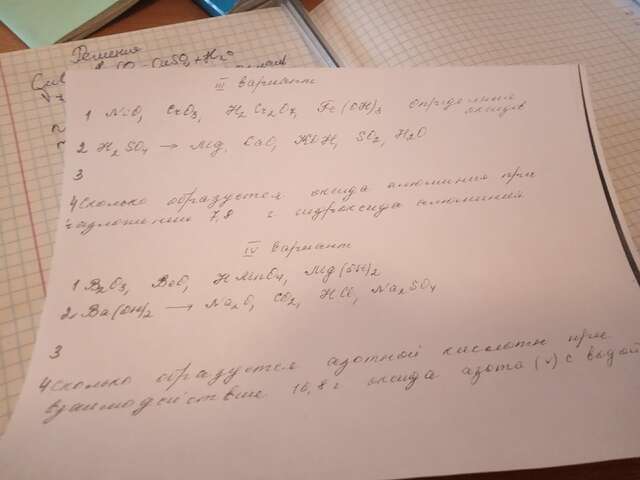 Решение
CuSO4 + H2O
III вариант
1 NiO, CrO3, H2Cr2O7, Fe(OH)3 определить
оксиды
2 H2SO4 → Mg, CaO, KOH, SO2, H2O
3
4 Сколько образуется оксида алюминия при
разложении 7,8 г гидроксида алюминия
IV вариант
1 B2O3, BeO, HMnO4, Mg(OH)2
2 Ba(OH)2 → Na2O, CO2, HCl, Na2SO4
3
4 Сколько образуется азотной кислоты при
взаимодействие 10,8 г оксида азота (v) с водой